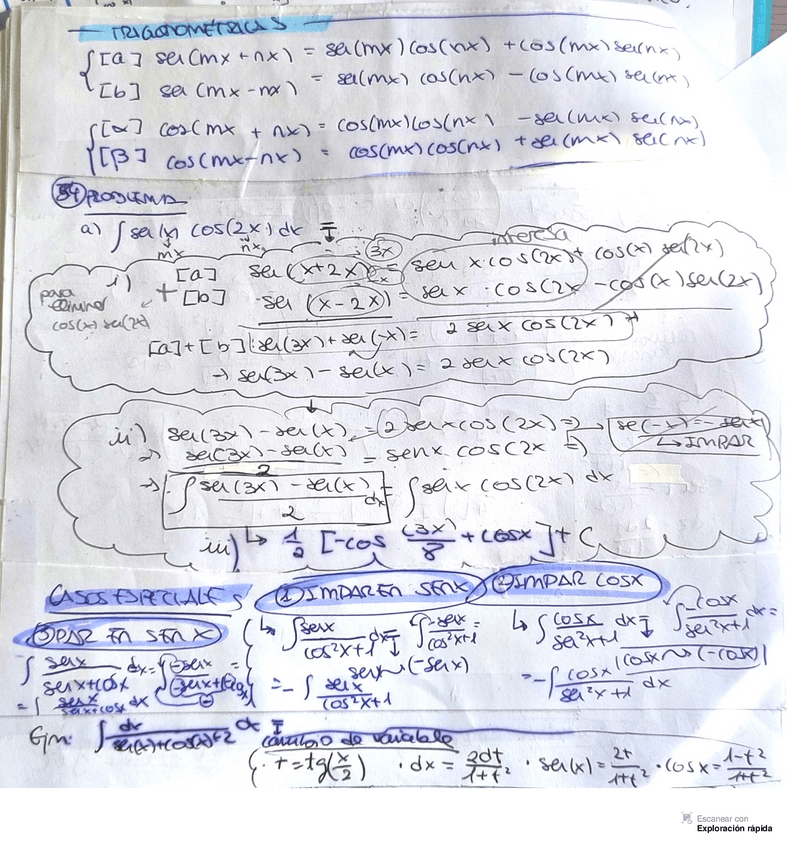 TRIGONOMÉTRICAS
[a] sen(mx+nx) = sen(mx)cos(nx) + cos(mx)sen(nx)
[b] sen(mx-nx) = sen(mx) cos(nx) - cos(mx) sen(nx)
[α] cos(mx + nx) = cos(mx)cos(nx) - sen(mx) sen(nx)
[β] cos(mx-nx) = cos(mx)cos(nx) + sen(mx) sen(nx)
34 PROBLEMA
a) ∫ sen(x) cos(2x) dx =
mx nx
interesa
i) [a] sen(x+2x) = sen x·cos(2x) + cos(x) sen(2x)
3x
para eliminar cos(x) sen(2x)
+ [b] sen(x-2x) = sen x · cos(2x - cos(x) sen(2x)
[a]+[b] : sen(3x) + sen(-x) = 2 sen x cos(2x)
→ sen(3x) - sen(x) = 2 sen x cos(2x)
ii) sen(3x) - sen(x) = 2 sen x cos(2x) =>
→ IMPAR
⇒ sen(3x) - sen(x) / 2 = sen x · cos(2x ⇒
→ ∫ sen(3x) - sen(x) / 2 dx = ∫ sen x cos(2x) dx
iii) ↳ 1/2 [-cos (3x)/8 + cosx] + C
CASOS ESPECIALES
① IMPAR EN SENX
② IMPAR COSX
③ PAR EN SEN X
↳ ∫ senx/cos²x+1 dx = ∫ -senx/cos²x+1 =
senx ~ (-senx)
= - ∫ senx/cos²x+1
↳ ∫ cosx/sen²x+1 dx = ∫ -cosx/sen²x+1 dx =
cosx ~ (-cosx)
= - ∫ cosx/sen²x+1 dx
∫ senx/senx+cosx dx = ∫ -senx
= ∫ senx/senx+cosx dx
Ejm: ∫ dx/sen(x)+cos(x)+2
cambio de variable
· t = tg(x/2) · dx = 2dt/1+t² · sen(x) = 2t/1+t² · cosx = 1-t²/1+t²
Escanear con
Exploración rápida